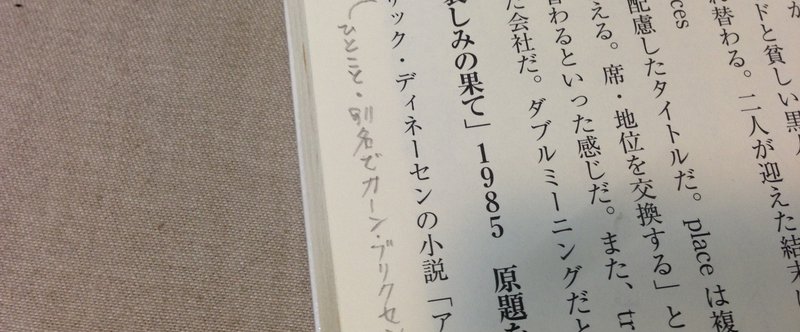 が
ドと貧しい黒人
替わる。二人が迎えた結末は
ces
配慮したタイトルだ。place は複
える。席・地位を交換する」と
わるといった感じだ。また、tr
た会社だ。ダブルミーニングだと
しみの果て」1985 原題
リック・ディネーセンの小説「ア
ひとこと・別名でカーン・ブリクセン